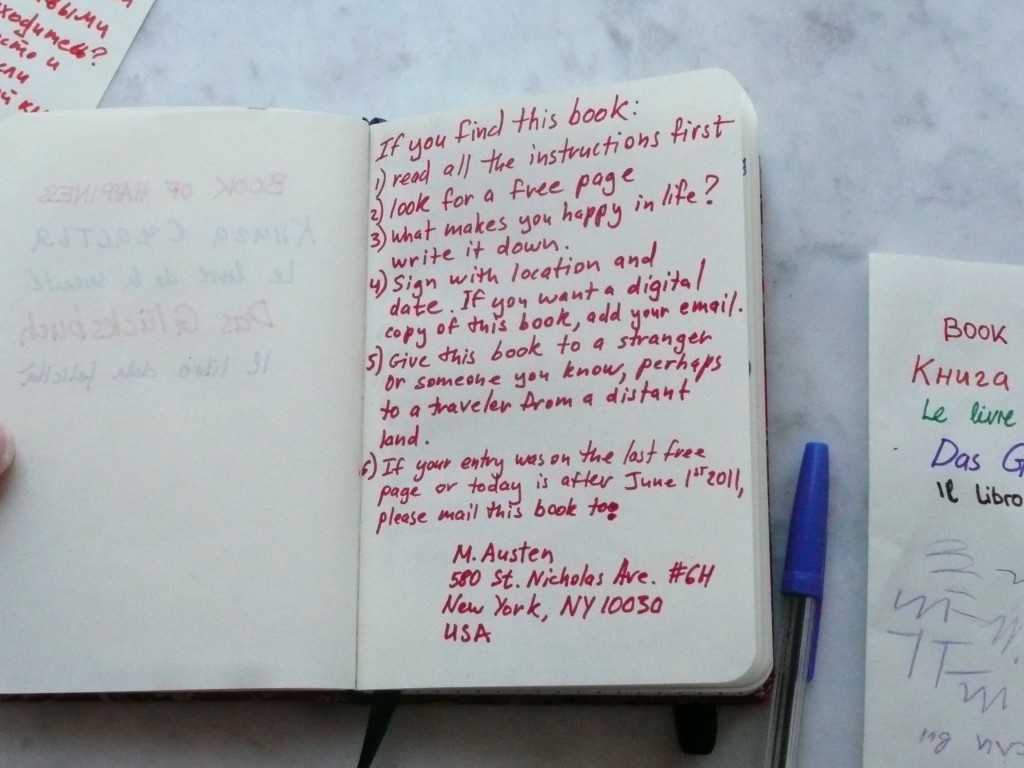 If you find this book:
1) read all the instructions first
2) look for a free page
3) what makes you happy in life?
write it down.
4) Sign with location and
date. If you want a digital
copy of this book, add your email.
5) Give this book to a stranger
or someone you know, perhaps
to a traveler from a distant
land.
6) If your entry was on the last free
page or today is after June 1ST 2011,
please mail this book to:
M. Austen
580 St. Nicholas Ave. #6H
New York, NY 10030
USA
BOOK OF HAPPINESS
Книга Счастья
Le livre de la
Das Glücksbuch
Il libro della felicità
BOOK
Книга
Le livre
Das G
Il libro